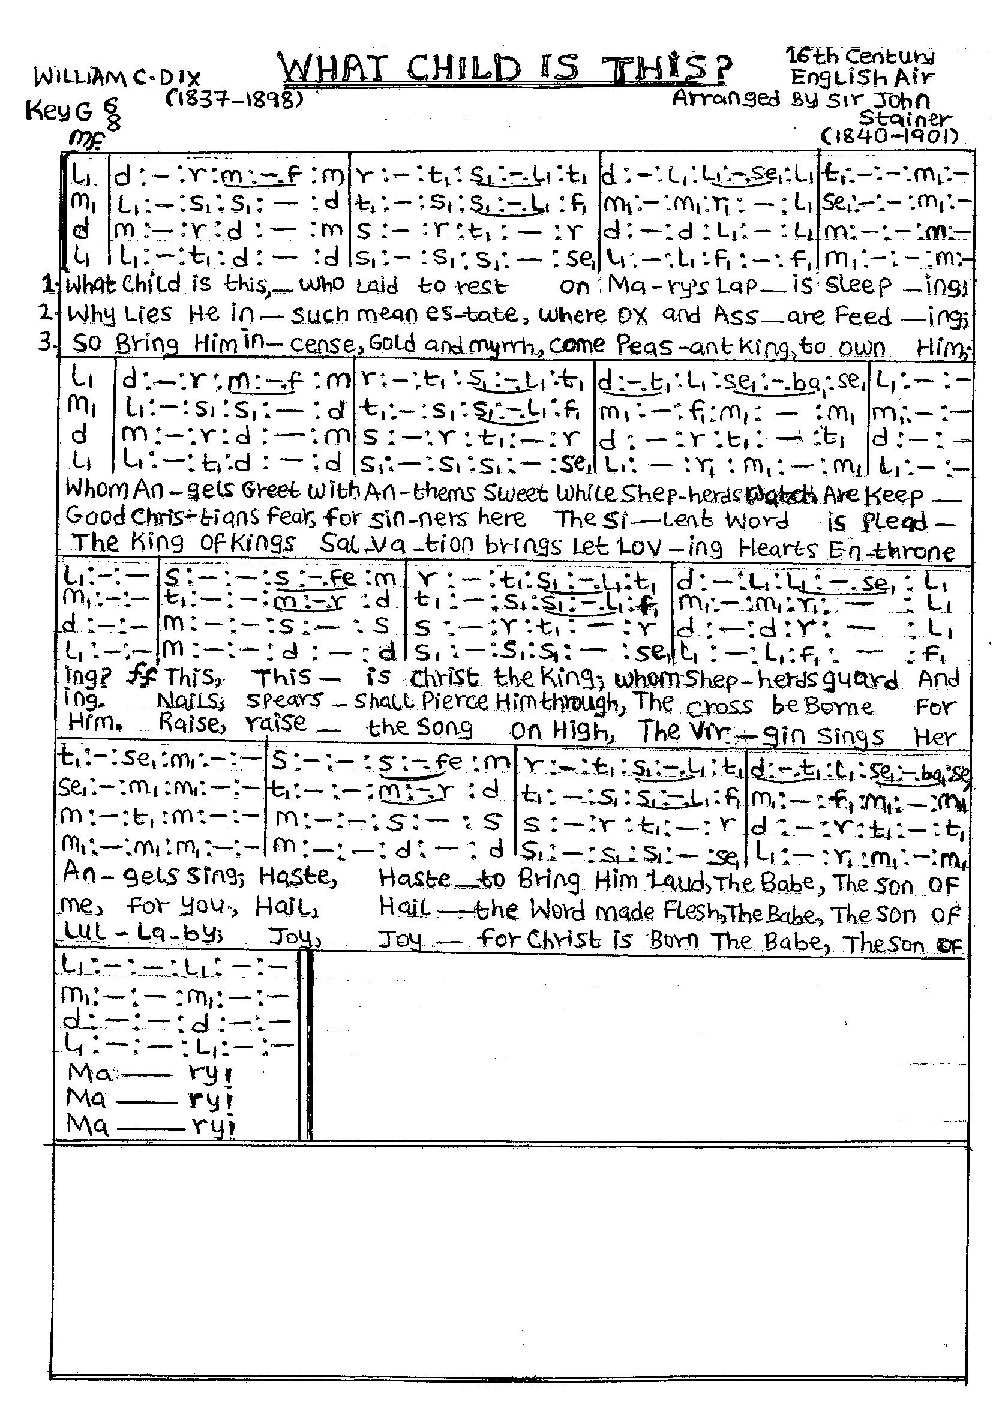 WHAT CHILD IS THIS?
WILLIAM C. DIX
(1837-1898)
16th Century
English Air
Arranged By Sir John
Stainer
(1840-1901)
Key G 6/8
mf
L₁ | d :- :r :m :-.f :m | r :- :t₁ :s₁ :-.L₁ :t₁ | d :- :L₁ :L₁ :-.se₁ :L₁ | t₁ :- :- :m₁ :-
m₁ | L₁ :- :s₁ :s₁ :- :d | t₁ :- :s₁ :s₁ :-.L₁ :f₁ | m₁ :- :m₁ :r₁ :- :L₁ | se₁ :- :- :m₁ :-
d | m :- :r :d :- :m | s :- :r :t₁ :- :r | d :- :d :L₁ :- :L₁ | m :- :- :m :-
L₁ | L₁ :- :t₁ :d :- :d | s₁ :- :s₁ :s₁ :- :se₁ | L₁ :- :L₁ :f₁ :- :f₁ | m₁ :- :- :m :-
1. What Child is this, — who Laid to rest on Ma-ry's Lap — is sleep -ing;
2. Why Lies He in — such mean es-tate, where ox and Ass — are Feed -ing;
3. So Bring Him in — cense, Gold and myrrh, come Peas-ant King, to own Him;
L₁ | d :- :r :m :-.f :m | r :- :t₁ :s₁ :-.L₁ :t₁ | d :-.t₁ :L₁ :se₁ :-.ba₁ :se₁ | L₁ :- :-
m₁ | L₁ :- :s₁ :s₁ :- :d | t₁ :- :s₁ :s₁ :-.L₁ :f₁ | m₁ :- :f₁ :m₁ :- :m₁ | m₁ :- :-
d | m :- :r :d :- :m | s :- :r :t₁ :- :r | d :- :r :t₁ :- :t₁ | d :- :-
L₁ | L₁ :- :t₁ :d :- :d | s₁ :- :s₁ :s₁ :- :se₁ | L₁ :- :r₁ :m₁ :- :m₁ | L₁ :- :-
Whom An-gels Greet with An-thems Sweet While Shep-herds Watch Are Keep —
Good Chris-tians fear, for sin-ners here The Si-Lent Word is Plead —
The King of Kings Sal-va-tion brings Let Lov-ing Hearts En-throne
L₁ :- :- | s :- :- :s :-.fe :m | r :- :t₁ :s₁ :-.L₁ :t₁ | d :- :L₁ :L₁ :-.se₁ :L₁
m₁ :- :- | t₁ :- :- :m :-.r :d | t₁ :- :s₁ :s₁ :-.L₁ :f₁ | m₁ :- :m₁ :r₁ :- :L₁
d :- :- | m :- :- :s :- :s | s :- :r :t₁ :- :r | d :- :d :r :- :L₁
L₁ :- :- | m :- :- :d :- :d | s₁ :- :s₁ :s₁ :- :se₁ | L₁ :- :L₁ :f₁ :- :f₁
ing? ff This, This — is Christ the King; whom Shep-herds guard And
ing. Nails; spears — shall Pierce Him through, The cross be Borne For
Him. Raise, raise — the Song on High, The Vir-gin Sings Her
t₁ :- :se₁ :m₁ :- :- | s :- :- :s :-.fe :m | r :- :t₁ :s₁ :-.L₁ :t₁ | d :-.t₁ :L₁ :se₁ :-.ba₁ :se₁
se₁ :- :m₁ :m₁ :- :- | t₁ :- :- :m :-.r :d | t₁ :- :s₁ :s₁ :-.L₁ :f₁ | m₁ :- :f₁ :m₁ :- :m₁
m :- :t₁ :m :- :- | m :- :- :s :- :s | s :- :r :t₁ :- :r | d :- :r :t₁ :- :t₁
m₁ :- :m₁ :m₁ :- :- | m :- :- :d :- :d | s₁ :- :s₁ :s₁ :- :se₁ | L₁ :- :r₁ :m₁ :- :m₁
An-gels sing; Haste, Haste — to Bring Him Laud, The Babe, The Son OF
me, for you., Hail, Hail — the Word made Flesh, The Babe, The Son of
Lul-La-by; Joy, Joy — for Christ is Born The Babe, The Son OF
L₁ :- :- :L₁ :- :-
m₁ :- :- :m₁ :- :-
d :- :- :d :- :-
L₁ :- :- :L₁ :- :-
Ma — ry!
Ma — ry!
Ma — ry!